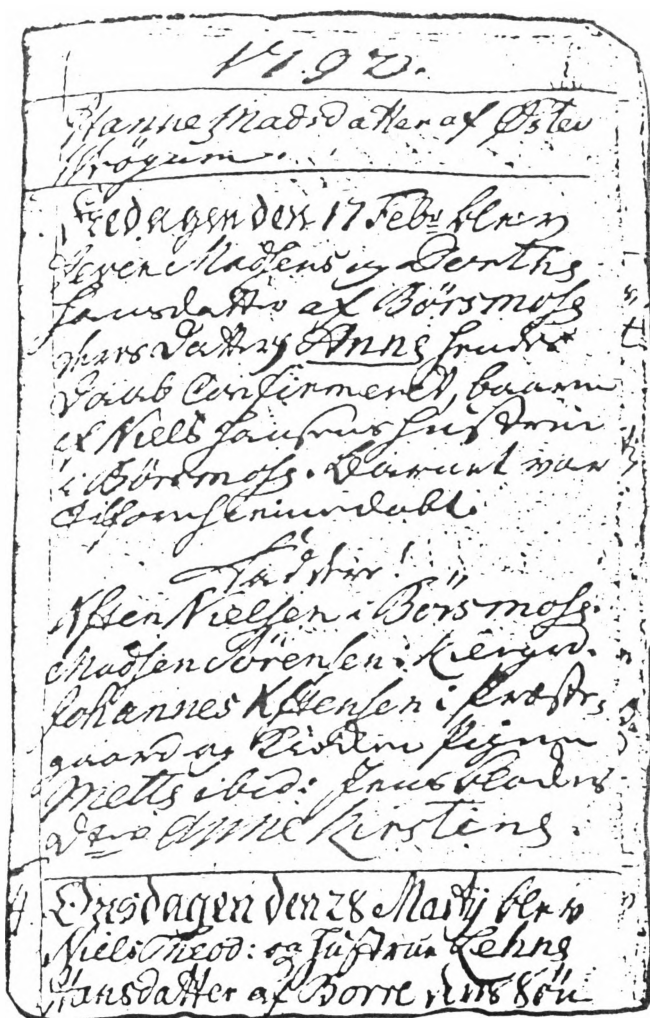 1792.
Hanne Madsdatter af Øster
Wrögum.
Fredagen den 17 Febr blev
Seren Madsens og Dorthe
Hansdatter af Börsmose
deres Datter Anne hendes
Daab Confirmeret, baaren
af Niels Hansens Hustrue
i Börsmose. Barnet var
tilforn hiemmedøbt.
Fadder!
Nielsen i Börsmose.
Madsen Sörensen i Kiergrd.
Johannes i Præste-
gaard og Pigen
Mette ibid:
Anne Kirstine.
Onsdagen den 28 Martij blev
Niels Theod: og Hustrue Lehne
Hansdatter af Borre deres Sön